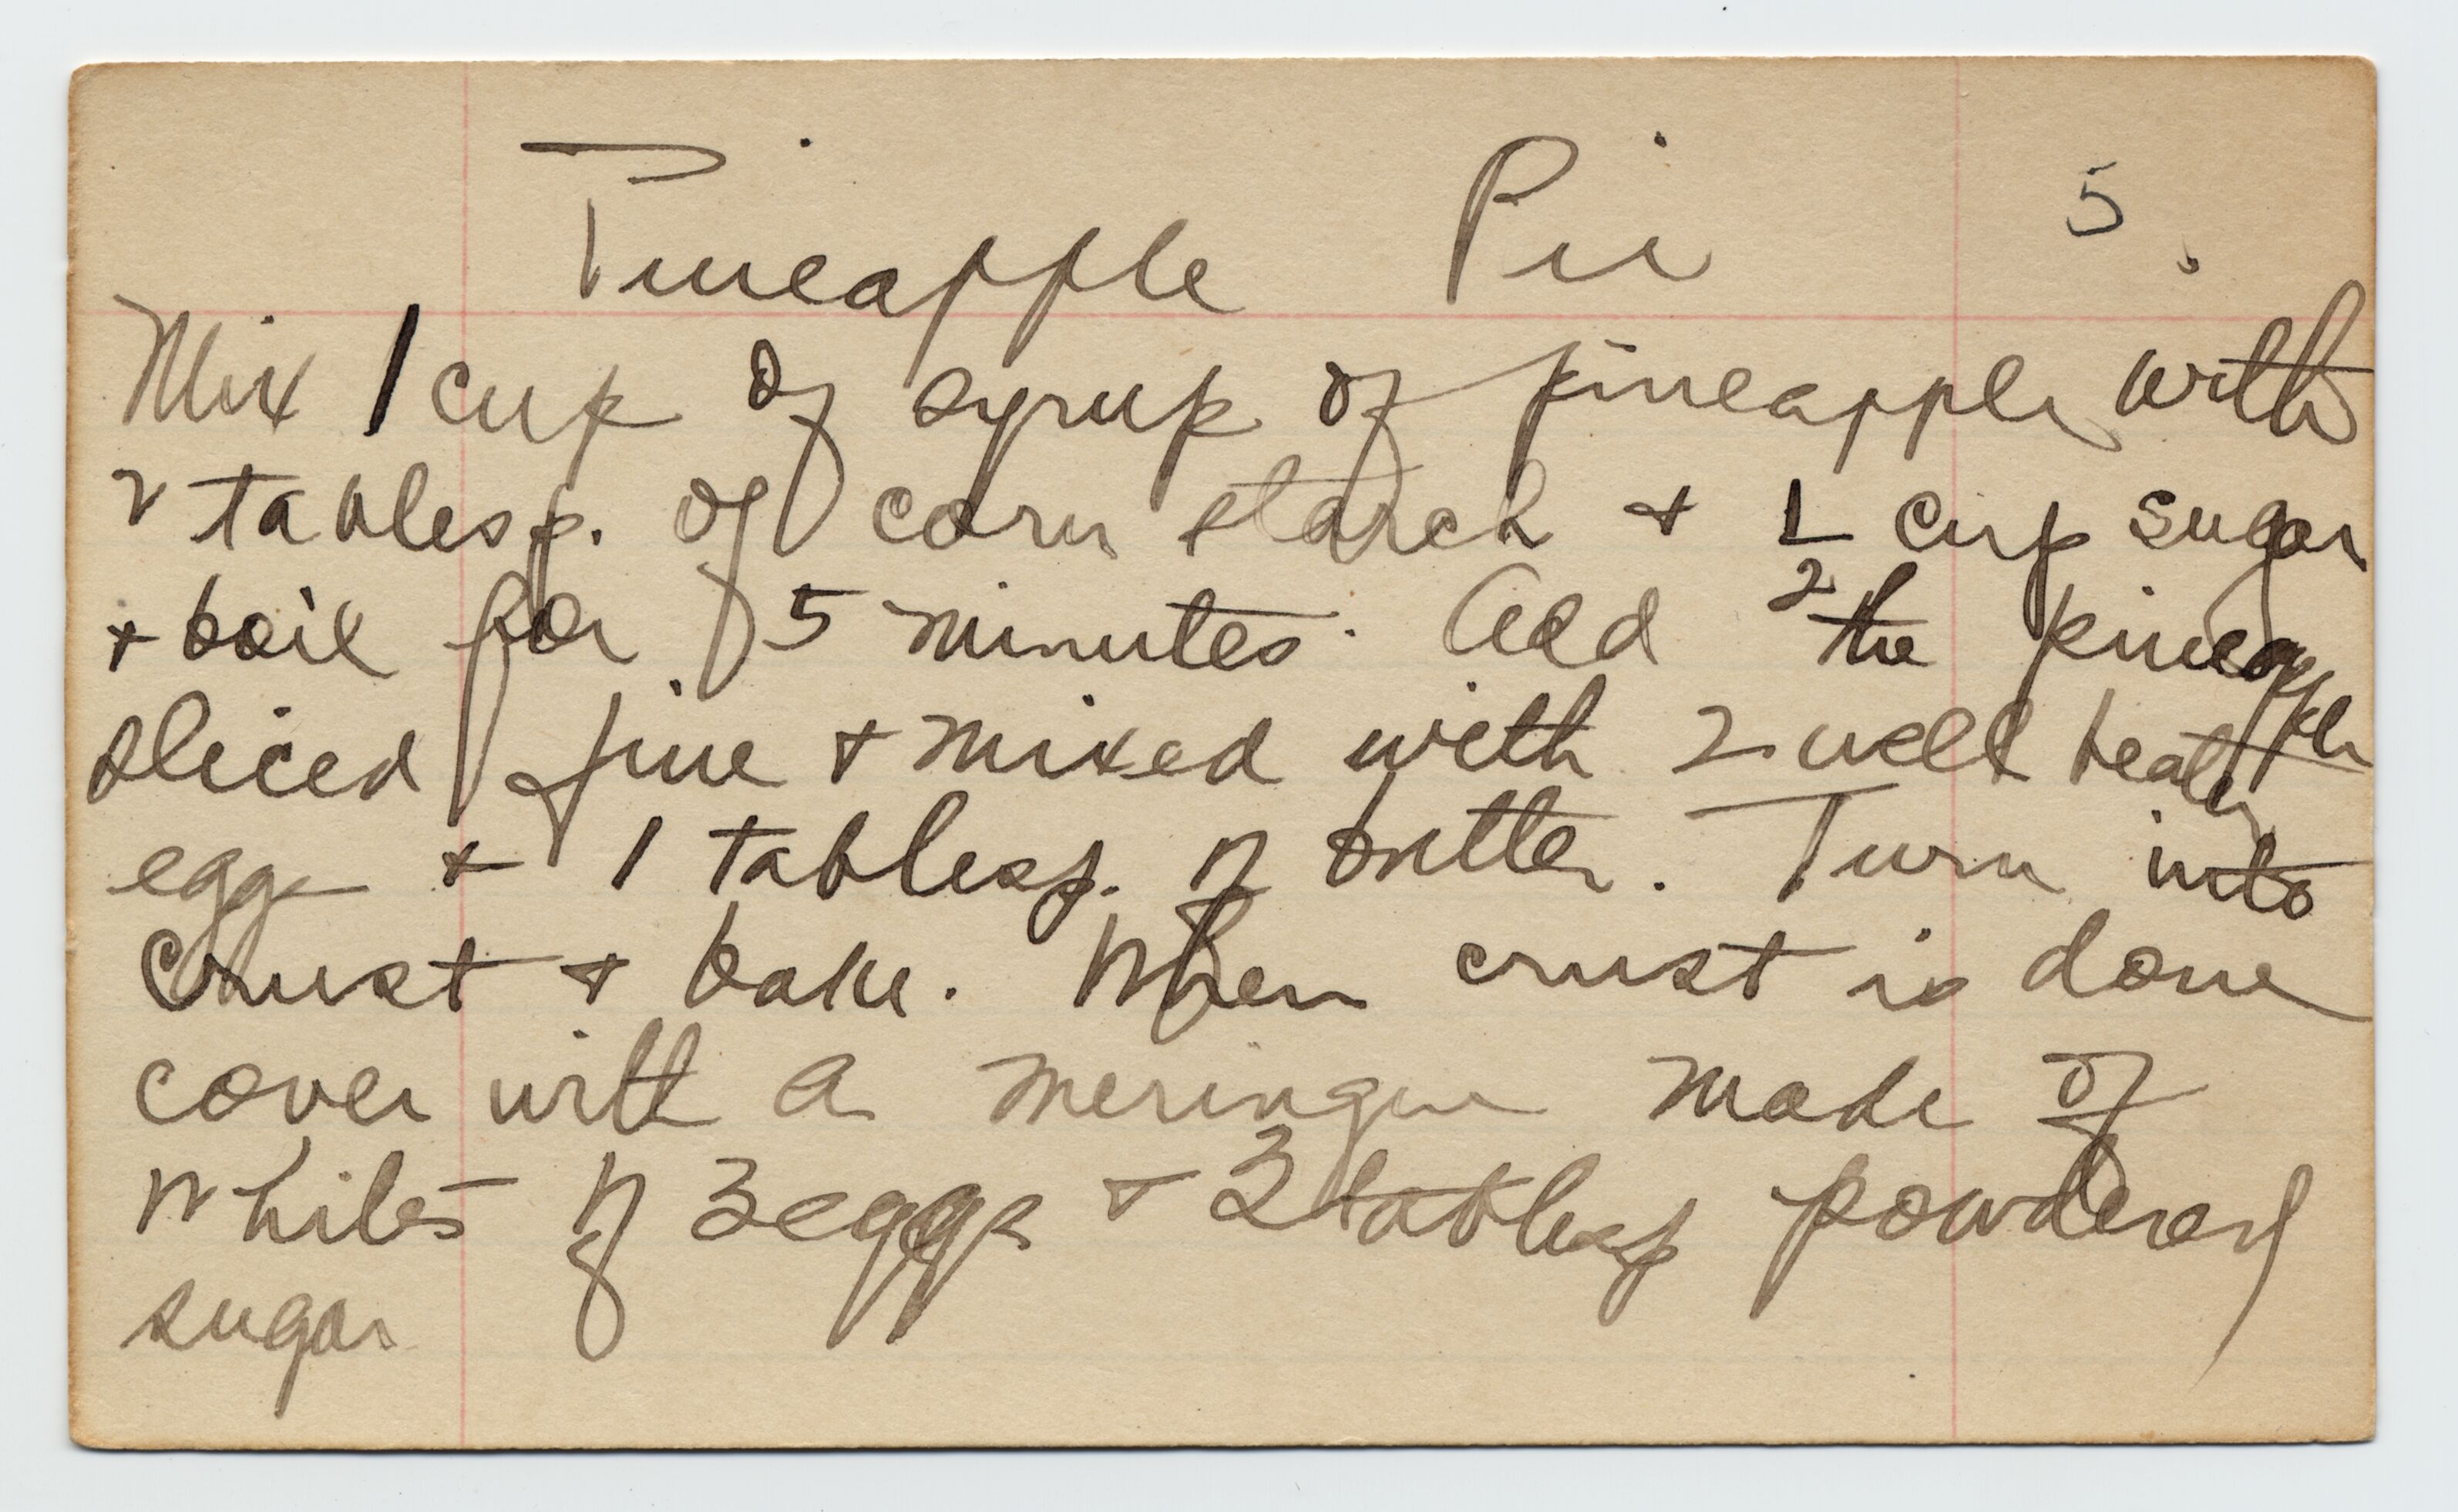 Pineapple Pie 5
Mix 1 cup of syrup of pineapple with
2 tablesp. of corn starch + 1/2 cup sugar
+ boil for 5 minutes. Add the pineapple
sliced fine + mixed with 2 well beaten
egg + 1 tablesp. of butter. Turn into
crust + bake. When crust is done
cover with a meringue made of
whites of 3 eggs + 3 tablesp powdered
sugar